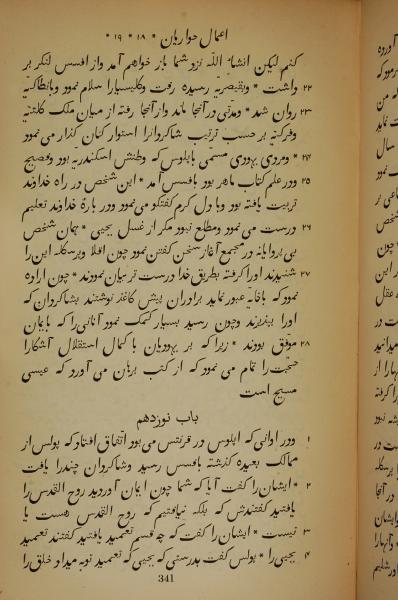 اعمال حواریان * ۱۸ * ۱۹ *
کنم لیکن انشاء اللّه نزد شما باز خواهم آمد و از افسس لنکر بر
۲۲ داشت * و بقیصریه رسیده رفت و کلیسیا را سلام نمود و بانطاکیه
۲۳ روان شد * و مدّتی در آنجا ماند و از آنجا رفته از میان ملک کلتیه
و فرکیه بر حسب ترتیب شاکردانرا استوار کنان کذار می نمود
۲۴ * و مردی یهودی مسمی باپلوس که وطنش اسکندریه بود و فصیح
۲۵ و در علم کتاب ماهر بود بافسس آمد * این شخص در راه خداوند
تربیت یافته بود و با دل کرم کفتکو می نمود و در بارۀ خداوند تعلیم
۲۶ درست می نمود و مطلع نبود مکر از غسل یحیی * همان شخص
بی پروایانه در مجمع آغاز سخن کفتن نمود چون اقلا و پرسکله این را
۲۷ شنیدند او را کرفته بطریق خدا درست تر بیان نمودند * چون اراده
نمود که باخائیه عبور نماید برادران پیش کاغذ نوشتند بشاکردان که
اورا بپذیرند و چون رسید بسیار کمک نمود آنانی را که بایمان
۲۸ موفق بودند * زیرا که بر یهودیان با کمال استقلال آشکارا
حجّت را تمام می نمود که از کتب برهان می آورد که عیسی
مسیح است
باب نوزدهم
۱ و در اوانی که اپلوس در قرنتس می بود اتّفاق افتاد که پولس از
ممالک بعیده کذشته بافسس رسید و شاکردان چند را یافت
۲ * ایشان را کفت آیا که شما چون ایمان آوردید روح القدس را
یافتید کفتندش که بلکه نیافتیم که روح القدس هست یا
۳ نیست * ایشان را کفت که چه قسم تعمید یافتید کفتند تعمید
۴ یحیی را * پولس کفت بدرستی که یحیی که تعمید توبه میداد خلق را
341